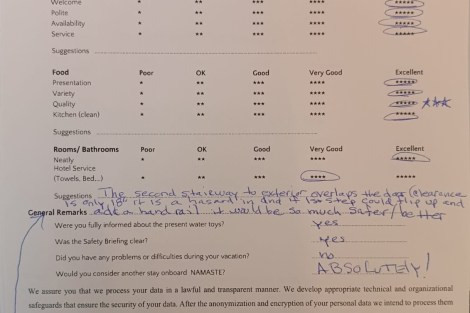 Welcome * ** *** **** *****
Polite * ** *** **** *****
Availability * ** *** **** *****
Service * ** *** **** *****
Suggestions
Food Poor OK Good Very Good Excellent
Presentation * ** *** **** *****
Variety * ** *** **** *****
Quality * ** *** **** ***** ***
Kitchen (clean) * ** *** **** *****
Suggestions
Rooms/ Bathrooms Poor OK Good Very Good Excellent
Neatly * ** *** **** *****
Hotel Service
(Towels, Bed...) * ** *** **** *****
Suggestions The second stairway to exterior overlaps the door clearance
is only 18" it is a hazard in and if 1st step could flip up and
General Remarks add a hand rail it would be so much safer/better
Were you fully informed about the present water toys? yes
Was the Safety Briefing clear? yes
Did you have any problems or difficulties during your vacation? no
Would you consider another stay onboard NAMASTE? ABSOLUTELY!
We assure you that we process your data in a lawful and transparent manner. We develop appropriate technical and organizational
safeguards that ensure the security of your data. After the anonymization and encryption of your personal data we intend to process them